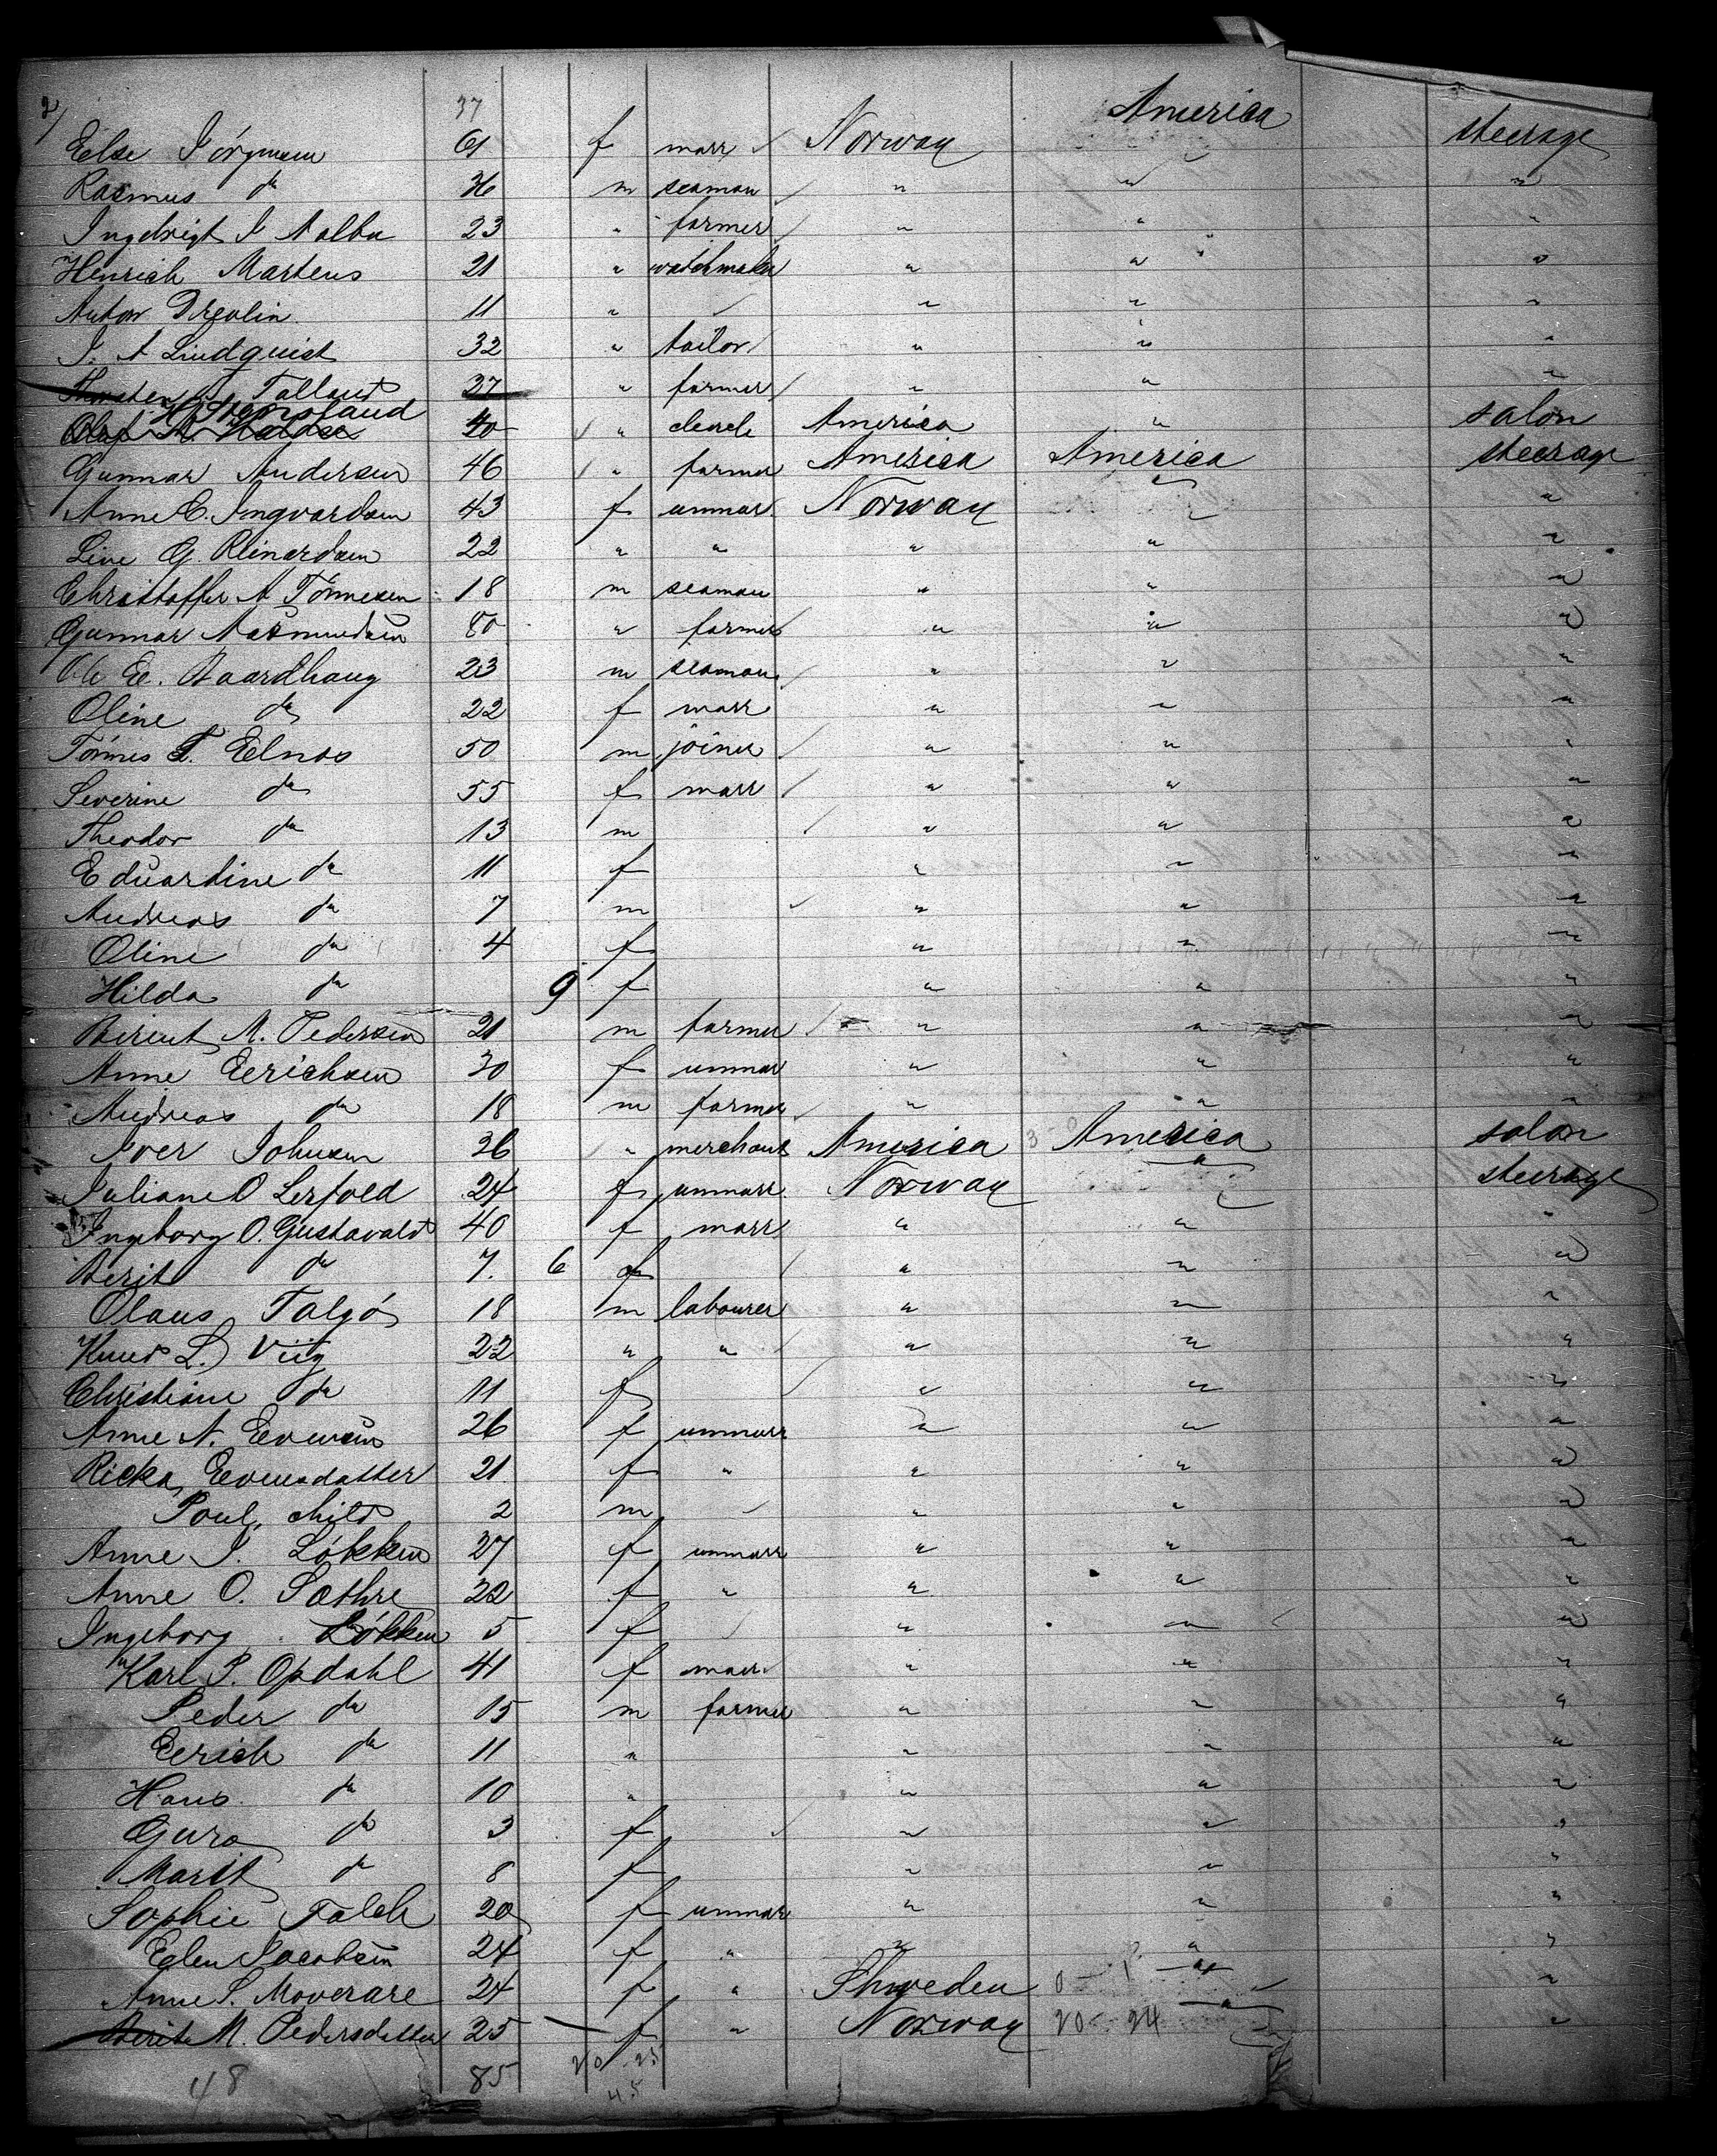 2/ 37 America
Eelse Jórgensen 61 f marr Norway steerage
Rasmus do 36 m seaman " " "
Ingebrigt I Aalbu 23 " farmer " " "
Henrich Martens 21 " watchmaker " " "
Anton Drevlin 11 " " " "
J. A Lindquist 32 " tailor " " "
Tolland 37 " farmer " " "
40 " clerck America " salon
Gunnar Andersen 46 " farmer America America steerage
Anne C. Ingvardsen 43 f unmar. Norway " "
Line G. Reinardsen 22 " " " " "
Christoffer A Tónnesen 18 m seaman " " "
Gunnar Aasmundsen 80 " farmer " " "
Ole Ee. Baardhaug 23 m seaman " " "
Oline do 22 f marr " " "
Tónnes T. Eelnes 50 m joiner " " "
Severine do 55 f marr " " "
Theodor do 13 m " " "
Eduardine do 11 f " " "
Andreas do 7 m " " "
Oline do 4 f " " "
Hilda do 9 f " " "
Berent M. Pedersen 21 m farmer " " "
Anne Eerichsen 30 f unmar " " "
Andreas do 18 m farmer " " "
Iver Johnsen 36 " merchant America America salon
Juliane O Lerfold 24 f unmarr. Norway " steerage
Ingeborg O. Gustavald 40 f marr " " "
Berit do 7. 6 f " " "
Olaus Talgó 18 m labourer " " "
Knud L. Viig 22 " " " " "
Christiane do 11 f " " "
Anne N. Eevensen 26 f unmarr " " "
Ricka Eevensdatter 21 f " " " "
Poul, child 2 m " " "
Anne I. Lókken 27 f unmarr " " "
Anne O. Sæthre 22 f " " " "
Ingeborg Lókken 5 f " " "
Kari P. Opdahl 41 f marr " " "
Peder do 15 m farmer " " "
Eerich do 11 " " " "
Hans do 10 " " " "
Guro do 3 f " " "
Marit do 8 f " " "
Sophie Falch 20 f unmar " " "
Eelen Jacobsen 24 f " " " "
Anne S. Moverare 24 f " Shweden " "
Berit M. Pedersdatter 25 f " Norway 20 - 24 " "
48 85 20 25
45